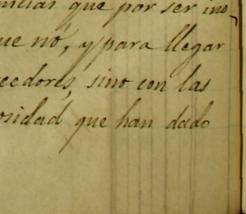 ncias que por ser ino
ue no, y para llegar
eedores, sino con las
osidad que han dado